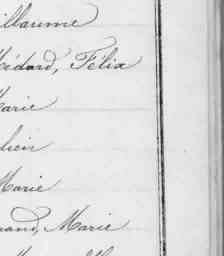 illaume
Médard, Félix
Marie
lien
Marie
nand, Marie